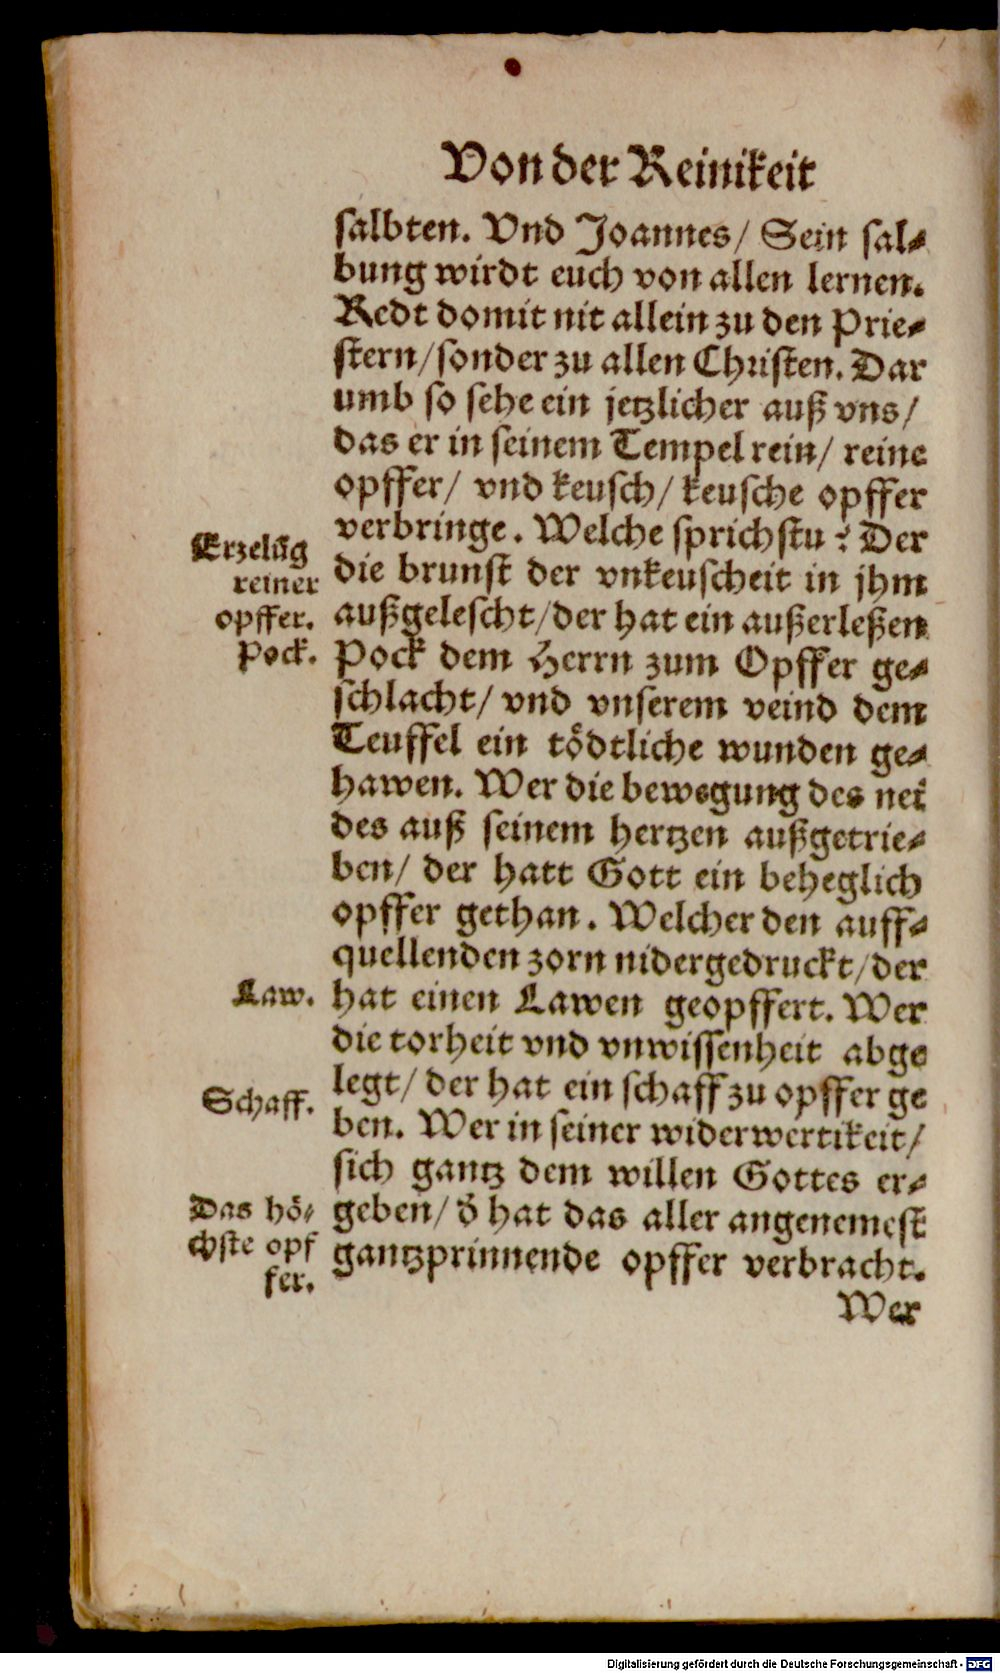 Von der Reinikeit
salbten. Vnd Joannes/ Sein sal⸗
bung wirdt euch von allen lernen.
Redt domit nit allein zu den Prie⸗
stern/sonder zu allen Christen. Dar
umb so sehe ein jetzlicher auß vns/
das er in seinem Tempel rein/ reine
opffer/ vnd keusch/ keusche opffer
verbringe. Welche sprichstu? Der
Erzelūg
die brunst der vnkeuscheit in jhm
reiner
außgelescht/der hat ein außerleßen
opffer.
Pock dem Herrn zum Opffer ge⸗
Pock.
schlacht/ vnd vnserem veind dem
Teuffel ein tödtliche wunden ge⸗
hawen. Wer die bewegung des nei
des auß seinem hertzen außgetrie⸗
ben/ der hatt Gott ein beheglich
opffer gethan. Welcher den auff⸗
quellenden zorn nidergedruckt/der
hat einen Lawen geopffert. Wer
Law.
die torheit vnd vnwissenheit abge
legt/ der hat ein schaff zu opffer ge
Schaff.
ben. Wer in seiner widerwertikeit/
sich gantz dem willen Gottes er⸗
geben/ d̄ hat das aller angenemest
Das hö⸗
gantzprinnende opffer verbracht.
chste opf
fer.
Wer
Digitalisierung gefördert durch die Deutsche Forschungsgemeinschaft - DFG